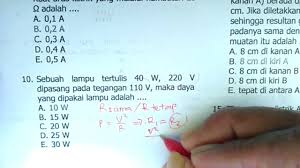 Ω adalah ....
A. 0,1 A
B. 0,2 A
C. 0,3 A
D. 0,4 A
E. 0,5 A
10. Sebuah lampu tertulis 40 W, 220 V
dipasang pada tegangan 110 V, maka daya
yang dipakai lampu adalah ....
A. 10 W
B. 15 W
C. 20 W
D. 25 W
E. 30 W
R sama / R tetap
P = V²/R ⇒ R₁ = R₂
V²
kanan A) berada d
cm. Jika diletakkan
sehingga resultan
padanya sama den
muatan itu adalah
A. 8 cm di kanan
B. 8 cm di kanan
C. 8 cm di
D. 4 cm
E. 4 c
15.